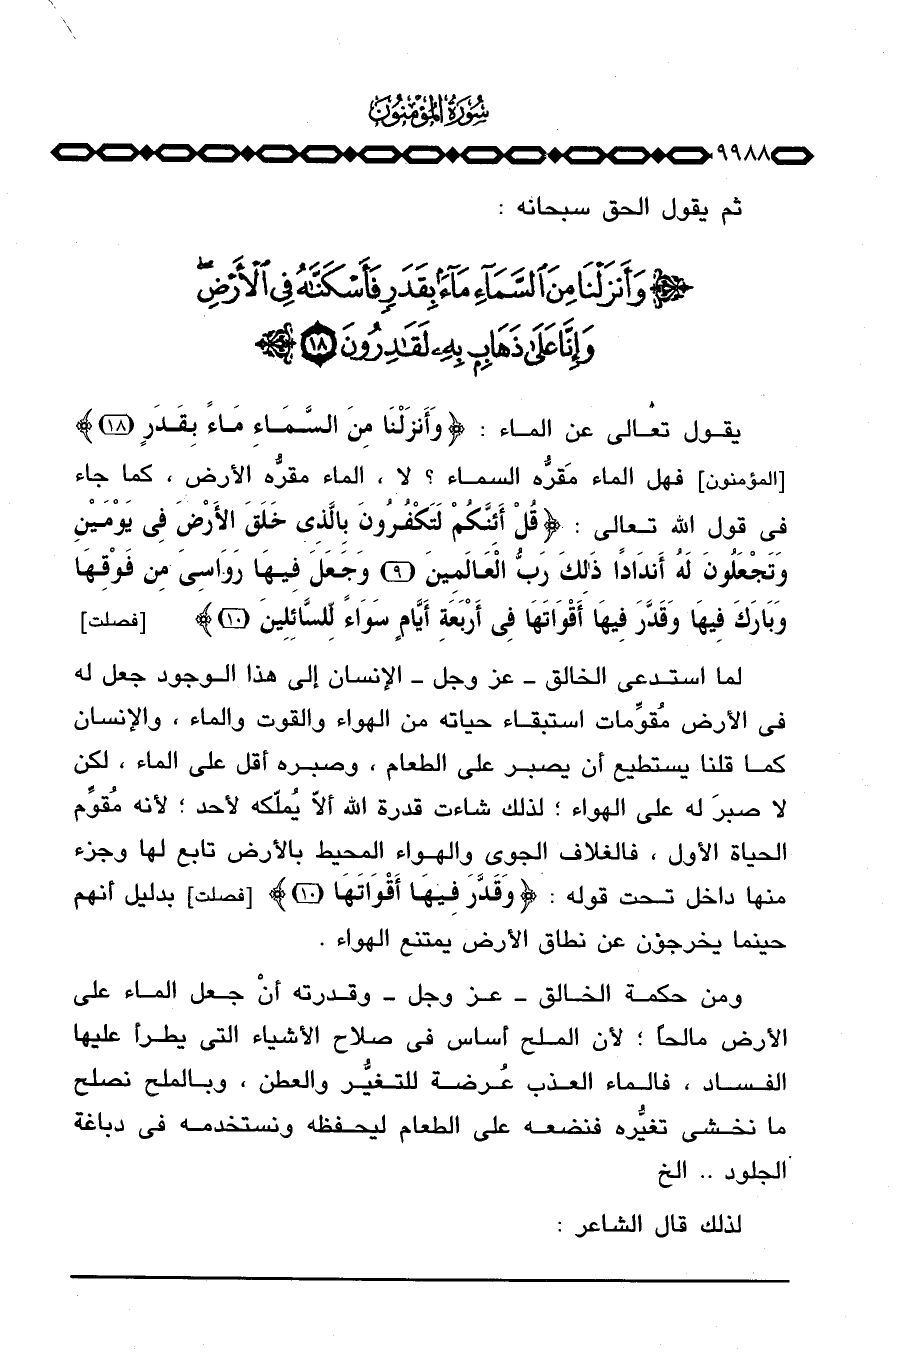 سُورَةُ المؤْمِنُونَ
٩٩٨٨
ثم يقول الحق سبحانه :
﴿ وَأَنزَلْنَا مِنَ ٱلسَّمَآءِ مَآءًۢ بِقَدَرٍ فَأَسْكَنَّٰهُ فِى ٱلْأَرْضِ ۖ
وَإِنَّا عَلَىٰ ذَهَابٍۭ بِهِۦ لَقَٰدِرُونَ ١٨ ﴾
يقول تعالى عن الماء : ﴿ وَأَنزَلْنَا مِنَ السَّمَاءِ مَاءً بِقَدَرٍ (١٨) ﴾
[المؤمنون] فهل الماء مَقرُّه السماء ؟ لا ، الماء مقرُّه الأرض ، كما جاء
فى قول الله تعالى : ﴿ قُلْ أَئِنَّكُمْ لَتَكْفُرُونَ بِالَّذِى خَلَقَ الأَرْضَ فِى يَوْمَيْنِ
وَتَجْعَلُونَ لَهُ أَندَادًا ذَلِكَ رَبُّ الْعَالَمِينَ (٩) وَجَعَلَ فِيهَا رَوَاسِىَ مِن فَوْقِهَا
وَبَارَكَ فِيهَا وَقَدَّرَ فِيهَا أَقْوَاتَهَا فِى أَرْبَعَةِ أَيَّامٍ سَوَاءً لِّلسَّائِلِينَ (١٠) ﴾ [فصلت]
لما استدعى الخالق - عز وجل - الإنسان إلى هذا الوجود جعل له
فى الأرض مُقوِّمات استبقاء حياته من الهواء والقوت والماء ، والإنسان
كما قلنا يستطيع أن يصبر على الطعام ، وصبره أقل على الماء ، لكن
لا صبرَ له على الهواء ؛ لذلك شاءت قدرة الله ألاّ يُملّكه لأحد ؛ لأنه مُقوِّم
الحياة الأول ، فالغلاف الجوى والهواء المحيط بالأرض تابع لها وجزء
منها داخل تحت قوله : ﴿ وَقَدَّرَ فِيهَا أَقْوَاتَهَا (١٠) ﴾ [فصلت] بدليل أنهم
حينما يخرجوْن عن نطاق الأرض يمتنع الهواء .
ومن حكمة الخالق - عز وجل - وقدرته أنْ جعل الماء على
الأرض مالحاً ؛ لأن الملح أساس فى صلاح الأشياء التى يطرأ عليها
الفساد ، فالماء العذب عُرضة للتغيُّر والعطن ، وبالملح نصلح
ما نخشى تغيُّره فنضعه على الطعام ليحفظه ونستخدمه فى دباغة
الجلود .. الخ
لذلك قال الشاعر :